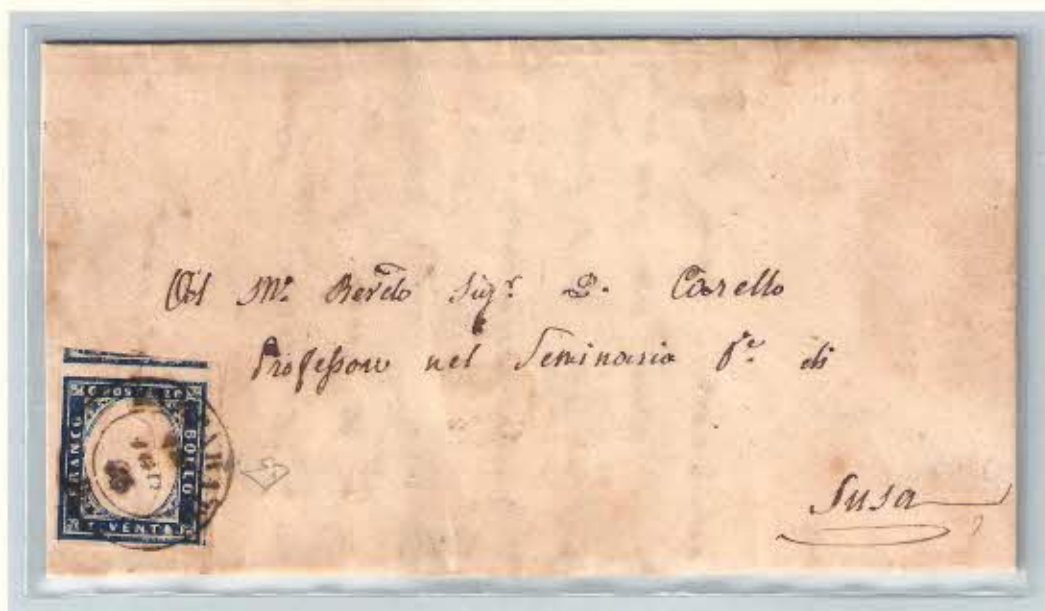 Al M.º Rev.do Sig.r D. Carello
Professore nel Seminario V.e di
Susa
C. POSTALE
FRANCO
BOLLO
C. VENTI